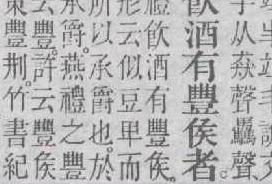 从猋聲驫聲
飲酒有豐侯者。
禮飲酒有豐侯。
形云似豆卑而
所以承爵也。於
承爵。燕禮之豐
云豐。許云豐侯
豐荆。竹書紀